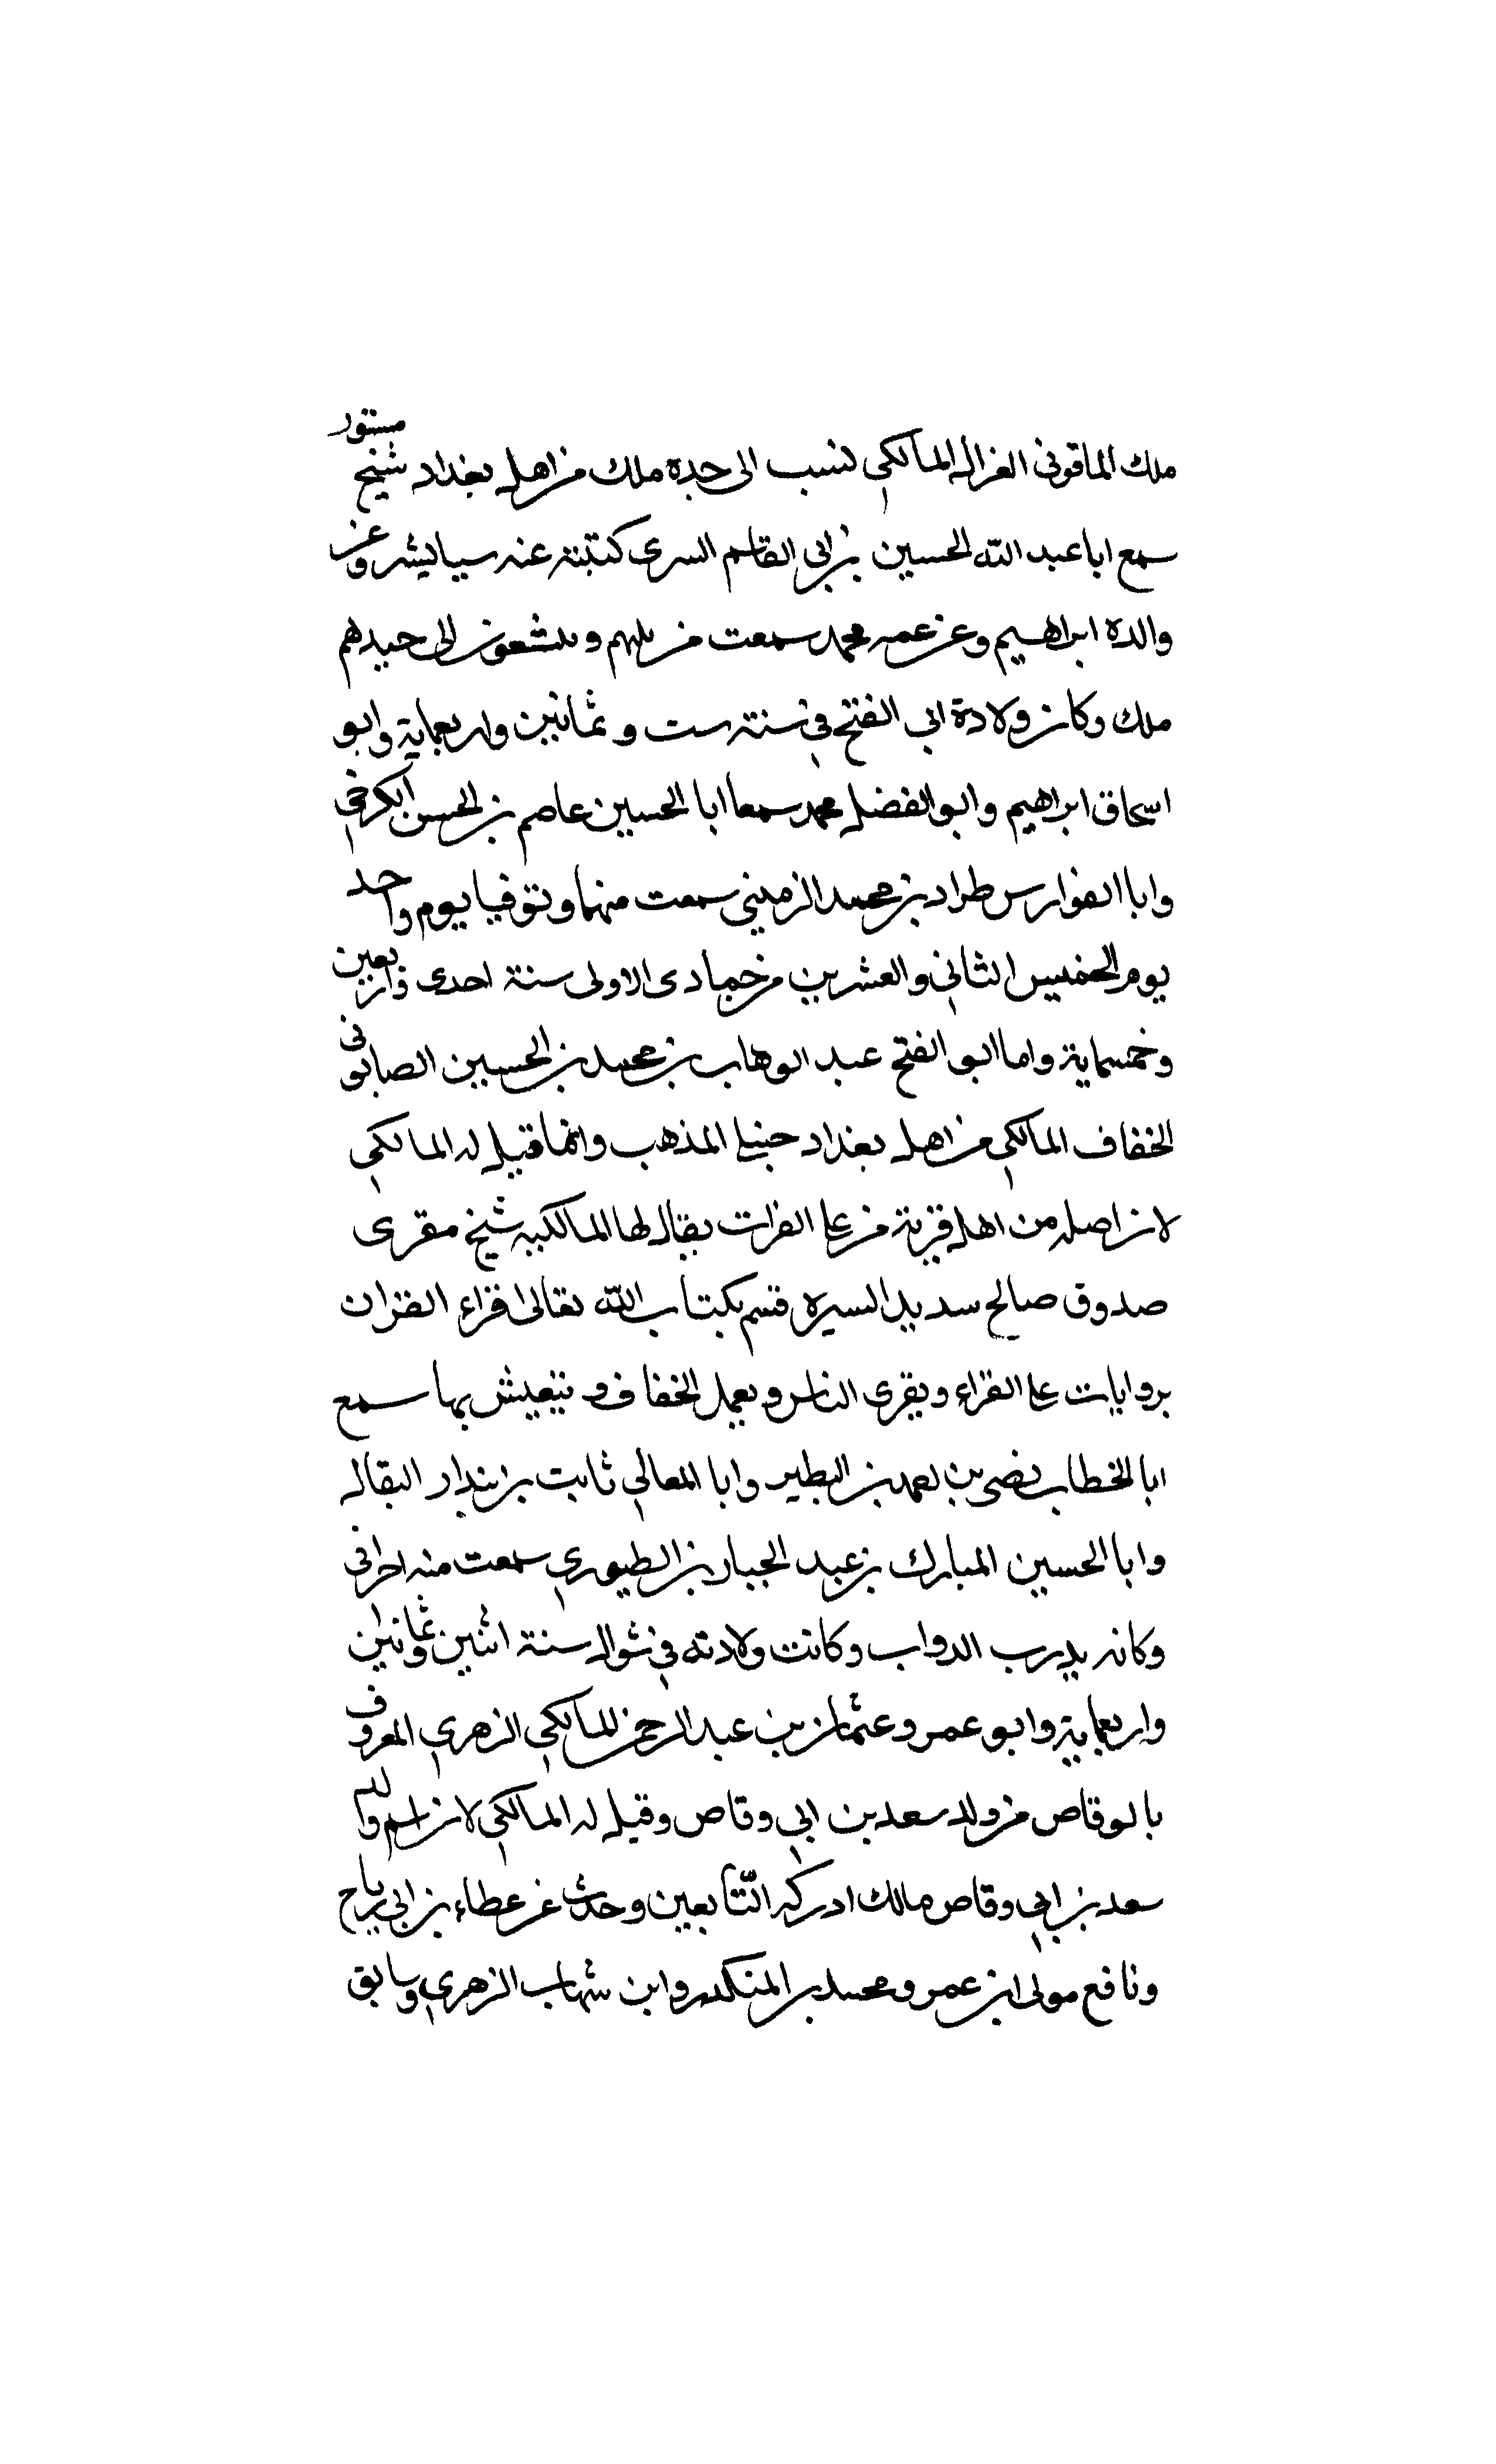 ملك الماقونى الغزال المالكي ينسب الى جده ملك من اهل بغداد شيخ مستور
سمع ابا عبد الله الحسين بن ابى القاسم السرى كتبت عنه سيا يشر وعن
والده ابراهيم وعن عمه محمد سمعت من بلهم وينتسبون الى جدهم
ملك وكان ولادة ابى الفتح في سنة ست وثمانين واربعماية وابو
اسحاق ابراهيم وابو الفضل محمد سمعا ابا الحسين عاصم بن الحسن الكرخي
وابا الفوارس طراد بن محمد الزينبي سمعت منهما وتوفيا يوم واحد
يوم الخميس الثاني والعشرين من جمادى الاولى سنة احدى واربعين
وخمسماية واما ابو الفتح عبد الوهاب بن محمد بن الحسين الصابونى
الخفاف المالكي من اهل بغداد حنبلى المذهب وانما قيل له المالكي
لان اصله من اهل قرية من على الفرات يقال لها المالكيه شيخ مقرى
صدوق صالح سديد السيره قسم بكتاب الله تعالى اقراء القران
بروايات على القراء ويقرى الناس ويعمل الخفاف ويتعيش بها سمع
ابا الخطاب نصر بن احمد بن البطير وابا المعالي ثابت بن بندار البقال
وابا الحسين المبارك بن عبد الجبار بن الطيوري سمعت منه احرانى
وكانه بدرب الدواب وكانت ولادته في شوال سنة اثنين وثمانين
واربعماية وابو عمرو عثمان بن عبد الرحمن المالكي الزهري المعروف
بالوقاص من ولد سعد بن ابي وقاص وقيل له المالكي لان اسم والد
سعد بن ابي وقاص مالك ادرك التابعين وحدث عن عطاء بن ابى رباح
ونافع مولى ابن عمر ومحمد بن المنكدر وابن شهاب الزهري وسابق